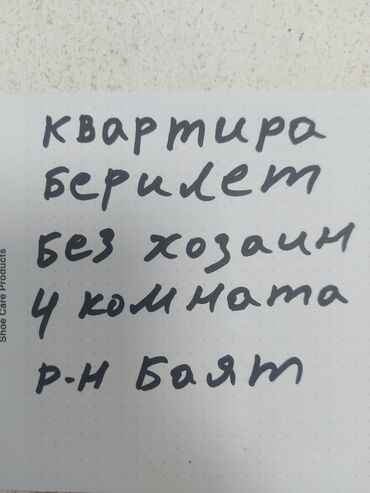 квартира
берилет
без хозаин
4 комната
р-н Баят
Shoe Care Products